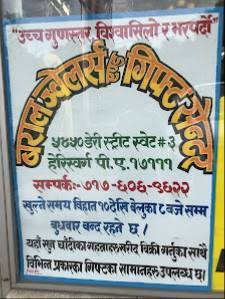 "उच्च गुणस्तर विश्वासिलो र भरपर्दो"
बराल ज्वेलर्स एण्ड गिफ्ट सेन्टर
५४५० डेरी स्ट्रीट स्वेट # ३
हेरिस्वर्ग पी.ए. १७१११
सम्पर्क:- ७१७-६०६-९६२२
खुल्ने समय विहान १० देखि बेलुका ८ वजे सम्म
बुधबार बन्द रहने छ।
यहाँ सुन चाँदीका गहनाहरू खरीद बिक्री गर्नुका साथै
विभिन्न प्रकारका गिफ्टका सामानहरू उपलब्ध छ।